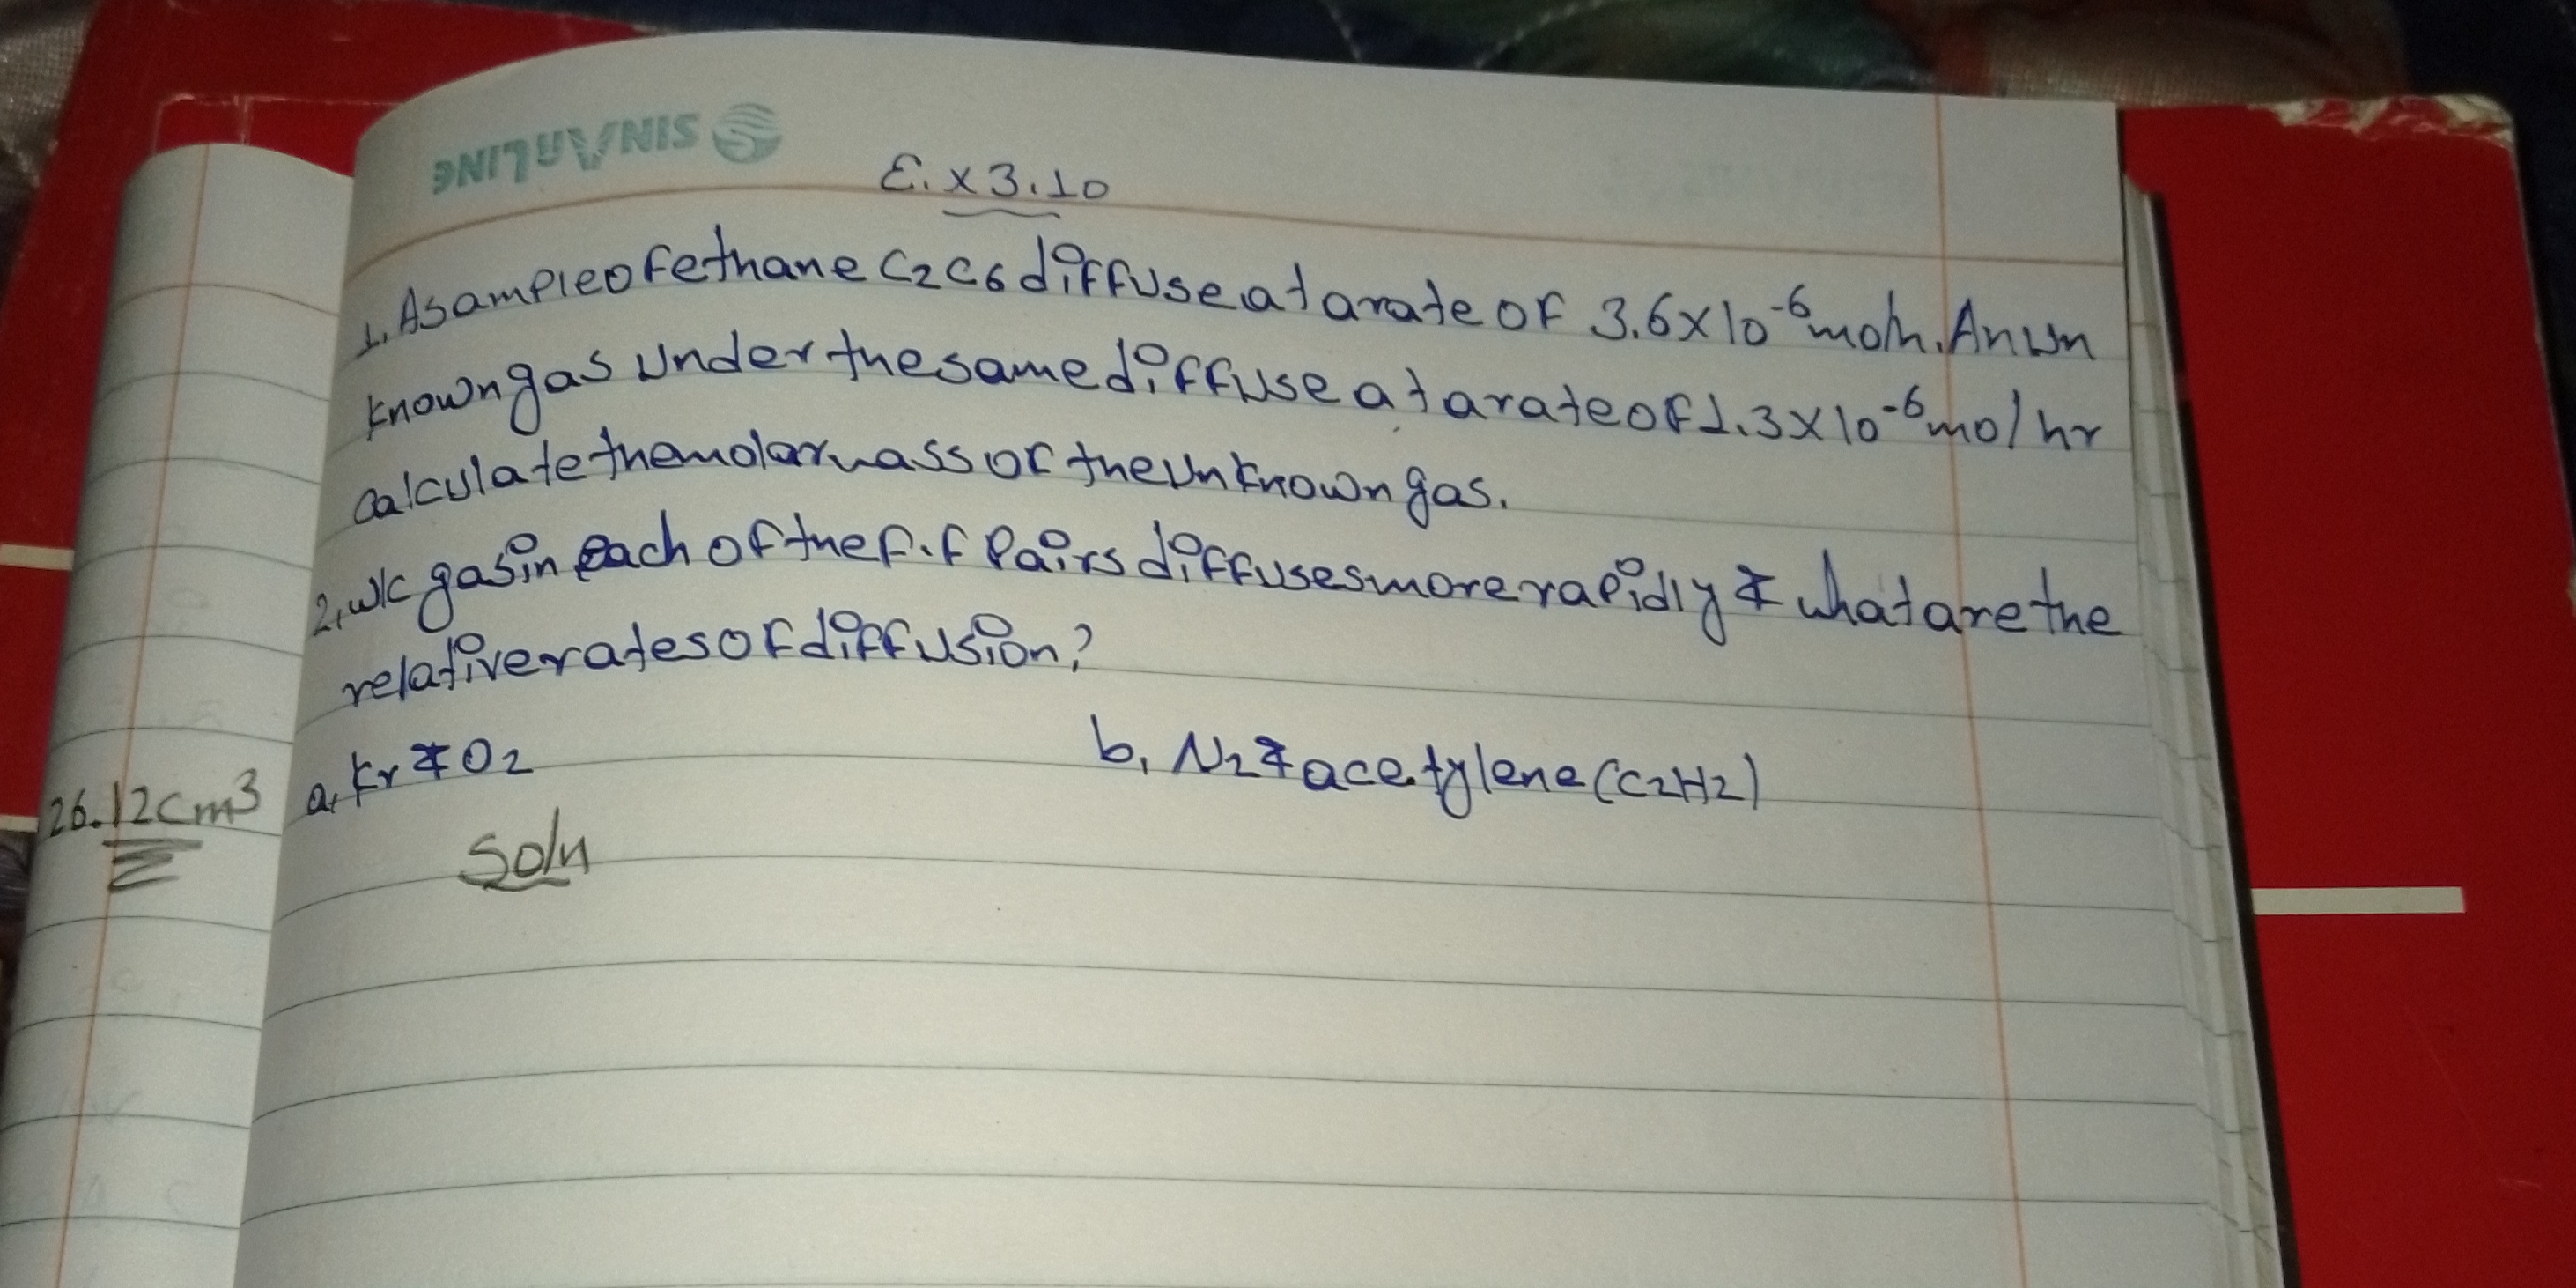 SINARLINE
E.x 3.10
1. A sample of ethane C2C6 diffuse at a rate of 3.6x10-6 mo/h. An un
known gas under the same diffuse at a rate of 1.3x10-6 mo/hr
calculate the molar mass of the unknown gas.
2, w/c gas in each of the f.f Pairs diffuses more rapidly & what are the
relative rates of diffusion?
a, Kr & O2
b, N2 & acetylene (C2H2)
26.12cm3
Soln